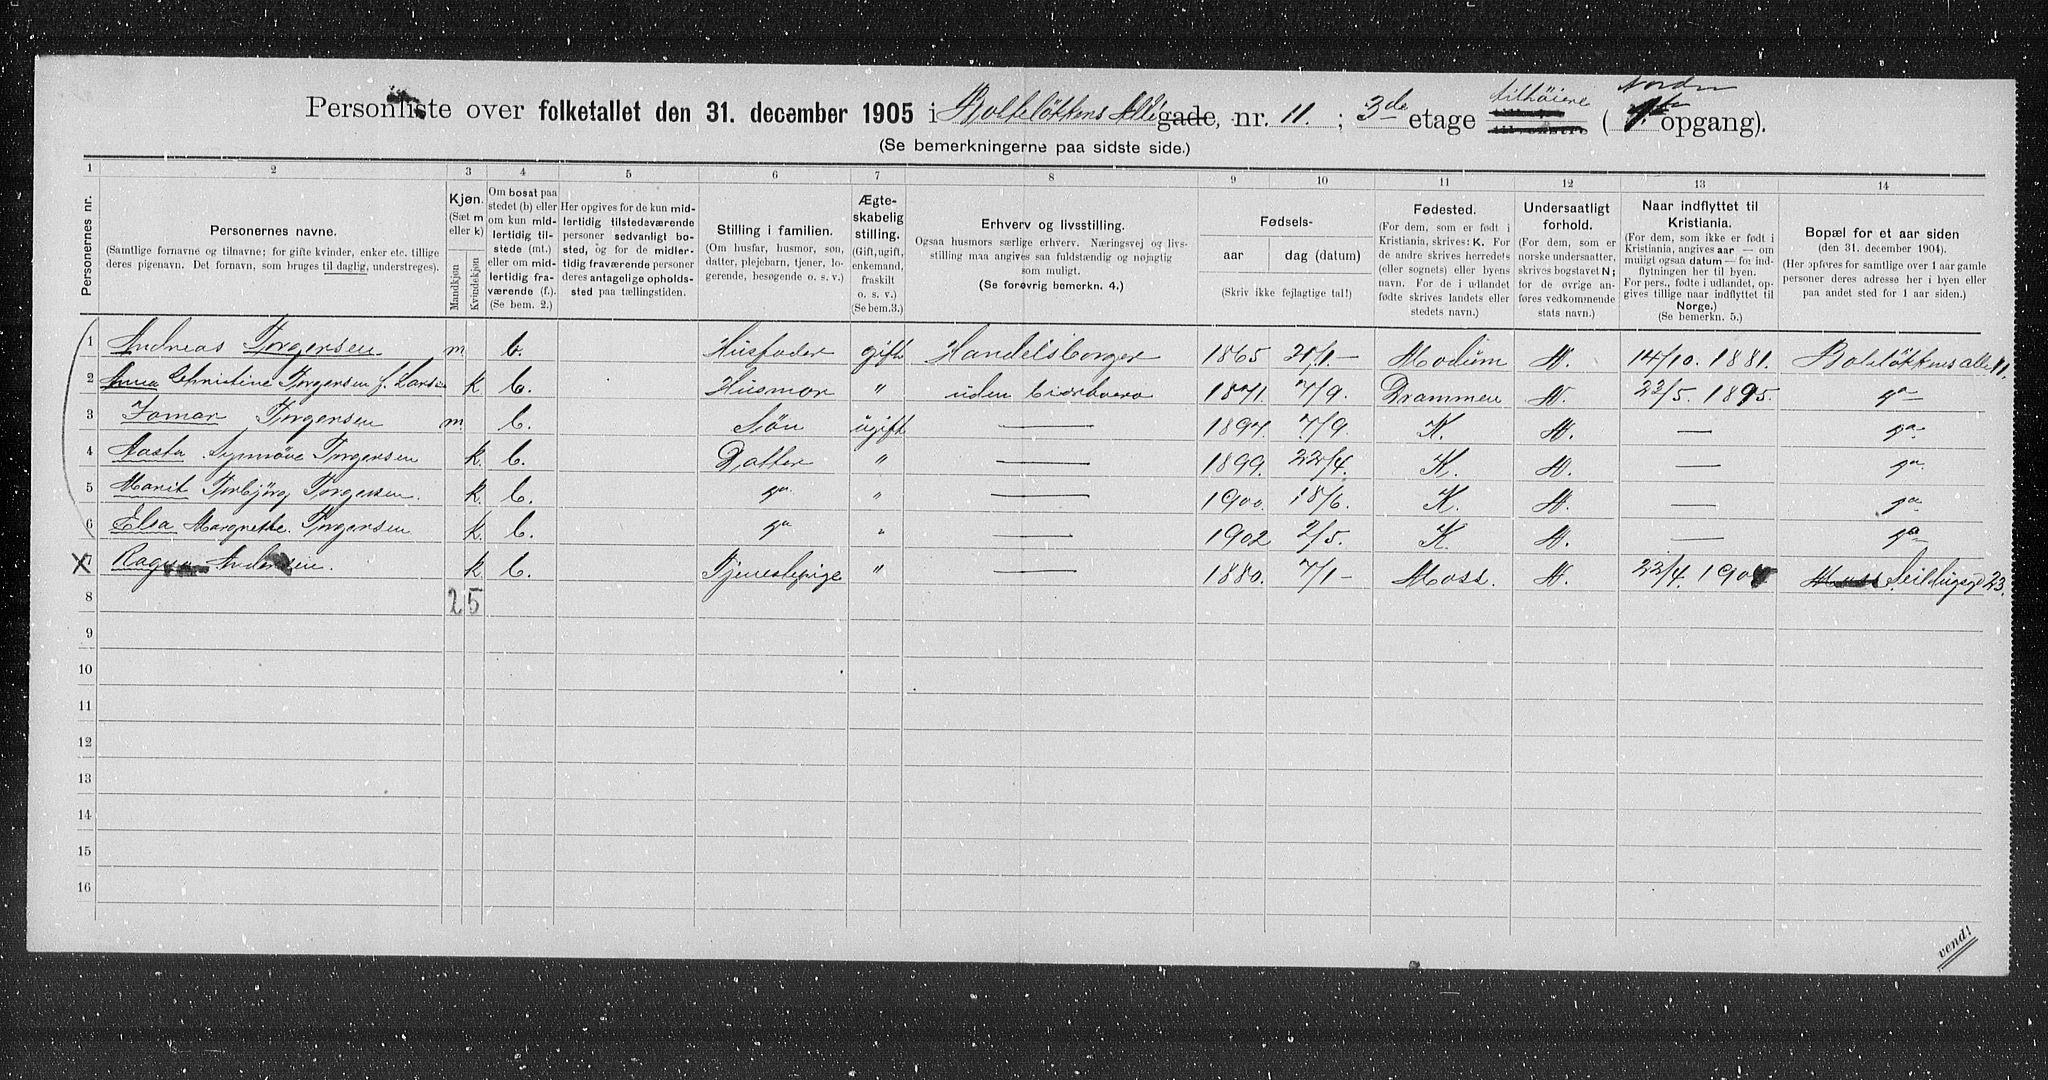 Personliste over folketallet den 31. december 1905 i Bolteløkkens Alle gade, nr. 11. ; 3de etage tilhøiere ( opgang).
(Se bemerkningerne paa sidste side.)
1 2 3 4 5 6 7 8 9 10 11 12 13 14
Personernes nr.
Personernes navne.
(Samtlige fornavne og tilnavne; for gifte kvinder, enker etc. tillige
deres pigenavn. Det fornavn, som bruges til daglig, understreges).
Kjøn.
(Sæt m
eller k)
Mandkjøn
Kvindekjøn
Om bosat paa
stedet (b) eller
om kun mid-
lertidig til-
stede (mt.)
eller om mid-
lertidig fra-
værende (f.).
(Se bem. 2.)
Her opgives for de kun mid-
lertidig tilstedeværende
personer sedvanligt bo-
sted, og for de midler-
tidig fraværende personer
deres antagelige opholds-
sted paa tællingstiden.
Stilling i familien.
(Om husfar, husmor, søn,
datter, plejebarn, tjener, lo-
gerende, besøgende o. s. v.)
Ægte-
skabelig
stilling.
(Gift, ugift,
enkemand,
fraskilt
o. s. v.)
(Se bem.3.)
Erhverv og livsstilling.
Ogsaa husmors særlige erhverv. Næringsvej og livs-
stilling maa angives saa fuldstændig og nøjagtig
som muligt.
(Se forøvrig bemerkn. 4.)
Fødsels-
aar dag (datum)
(Skriv ikke fejlagtige tal!)
Fødested.
(For dem, som er født i
Kristiania, skrives: K. For
de andre skrives herredets
(eller sognets) eller byens
navn. For de i udlandet
fødte skrives landets eller
stedets navn.)
Undersaatligt
forhold.
(For dem, som er
norske undersaatter,
skrives bogstavet N;
for de øvrige an-
føres vedkommende
stats navn.)
Naar indflyttet til
Kristiania.
(For dem, som ikke er født i
Kristiania, angives aar — om
muligt ogsaa datum — for ind-
flytningen her til byen.
For pers., fødte i udlandet, op-
gives tillige naar indflyttet til
Norge.)
(Se bemerkn. 5.)
Bopæl for et aar siden
(den 31. december 1904).
(Her opføres for samtlige over 1 aar gamle
personer deres adresse her i byen eller
paa andet sted for 1 aar siden.)
1 Andreas Torgersen m b. Husfader gift Handelsborger 1865 21/1 — Modum N. 14/10. 1881. Bolteløkkens alle 11.
2 Anna Christine Torgersen f. Larsen k b. Husmor " uden Erhverv 1871. 7/9. Drammen N. 23/5. 1895. do
3 Tormar Torgersen m. b. Søn ugift — 1897. 7/9 K. N. — do
4 Aasta Synnøve Torgersen k. b. Datter " — 1899. 22/4. K. N. — do
5 Marit Torbjørg Torgersen. k. b. do " — 1900. 18/6. K. N. — do
6 Elsa Margrethe Torgersen k. b. do " — 1902 2/5. K. N. — do
X 7 k. b. Tjenestepige " — 1880. 7/1 — Moss. N. 22/4. Moss. 23.
8 2 5
9
10
11
12
13
14
15
16
vend!